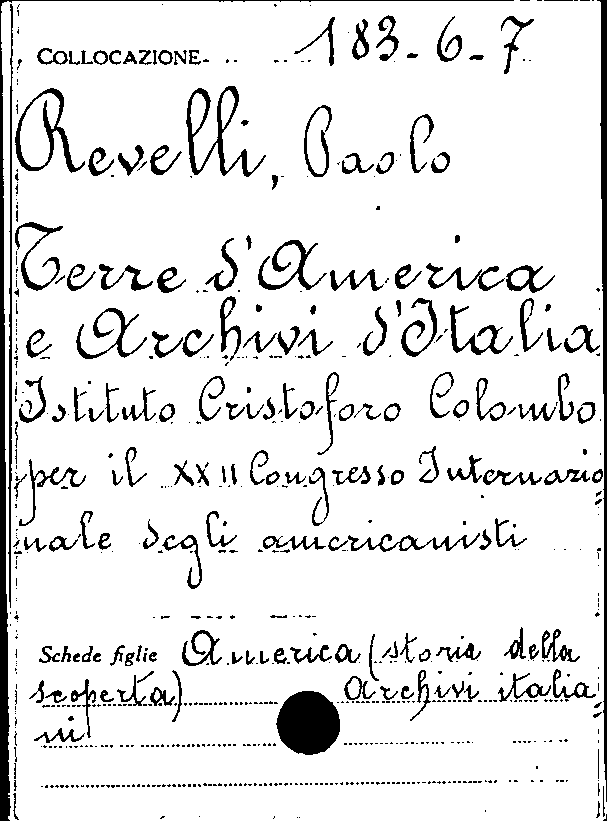 COLLOCAZIONE 183-6-7
Revelli, Paolo
Terre d'America
e Archivi d'Italia
Istituto Cristoforo Colombo
per il XXII Congresso Internazio=
nale degli americanisti
Schede figlie America (storia della
scoperta) Archivi italia=
ni